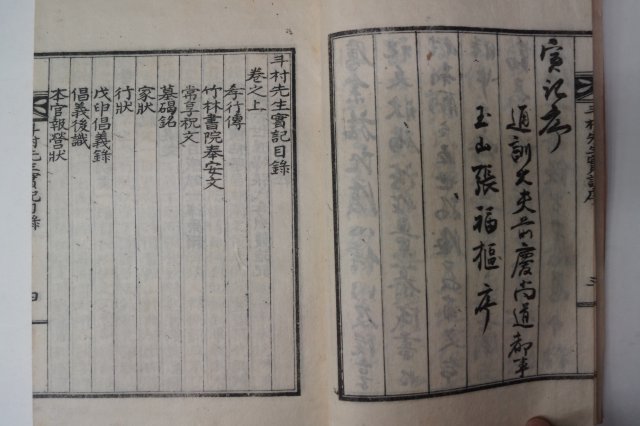 實記序
通訓大夫前慶尚道都事
玉山張福樞序
斗村先生實記序
三
斗村先生實記目錄
卷之上
孝行傳
竹林書院奉安文
常享祝文
墓碣銘
家狀
行狀
戊申倡義錄
倡義後識
本官報營狀
斗村先生實記目錄
四